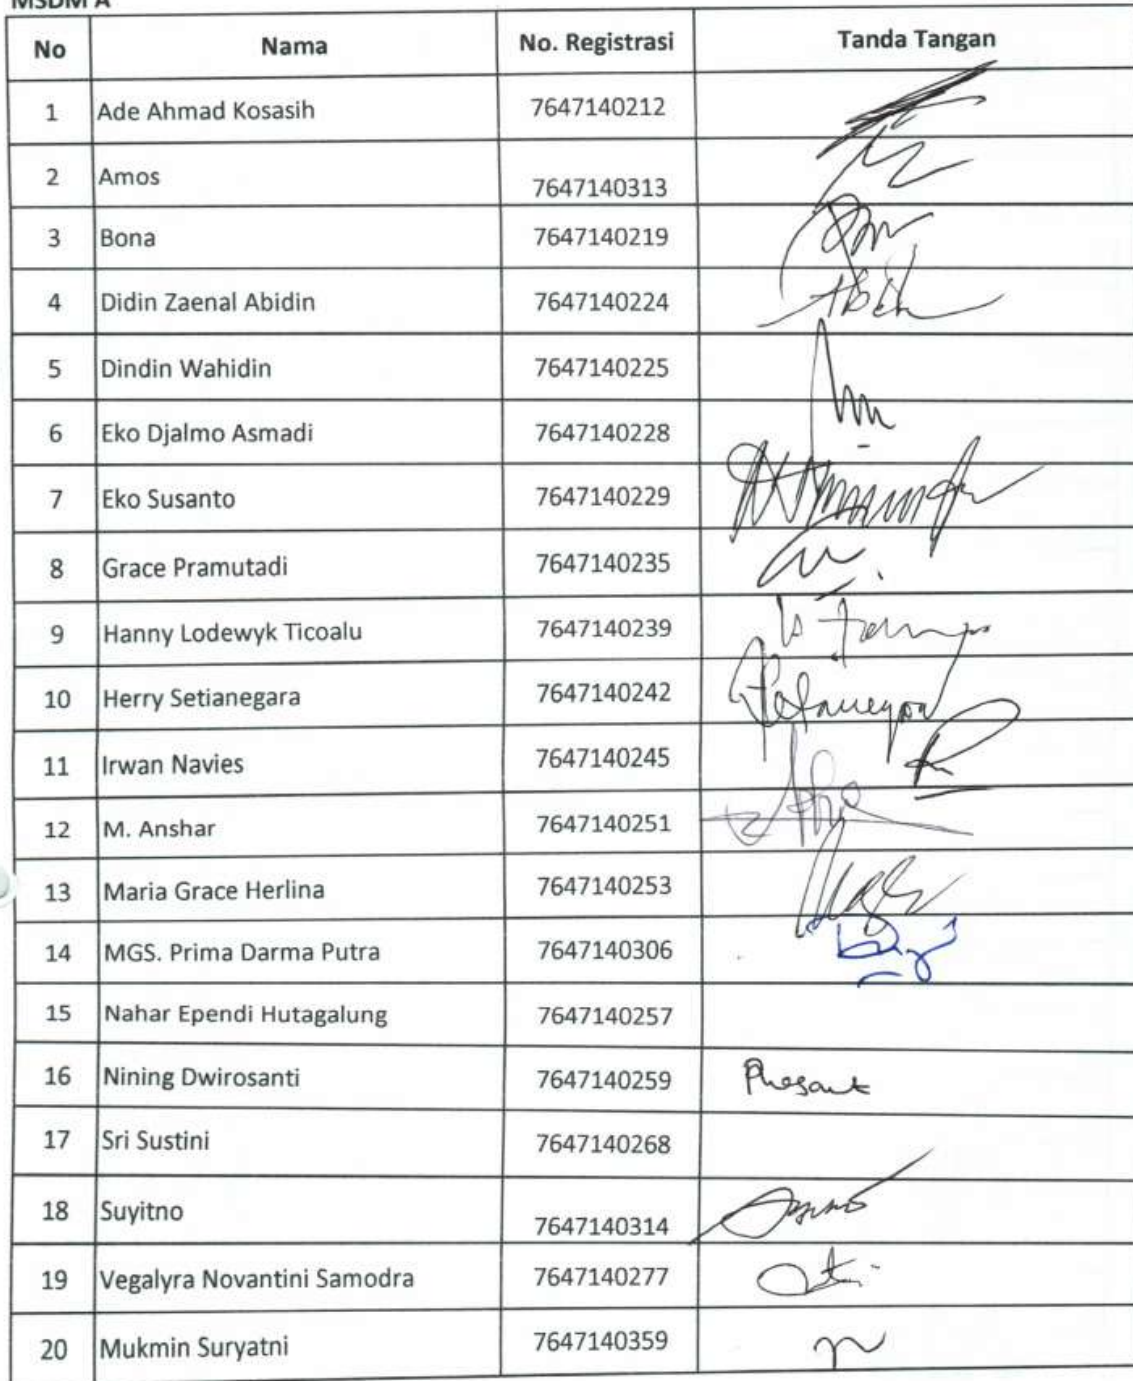 MSDM A
No Nama No. Registrasi Tanda Tangan
1 Ade Ahmad Kosasih 7647140212
2 Amos 7647140313
3 Bona 7647140219
4 Didin Zaenal Abidin 7647140224
5 Dindin Wahidin 7647140225
6 Eko Djalmo Asmadi 7647140228
7 Eko Susanto 7647140229
8 Grace Pramutadi 7647140235
9 Hanny Lodewyk Ticoalu 7647140239
10 Herry Setianegara 7647140242
11 Irwan Navies 7647140245
12 M. Anshar 7647140251
13 Maria Grace Herlina 7647140253
14 MGS. Prima Darma Putra 7647140306
15 Nahar Ependi Hutagalung 7647140257
16 Nining Dwirosanti 7647140259
17 Sri Sustini 7647140268
18 Suyitno 7647140314
19 Vegalyra Novantini Samodra 7647140277
20 Mukmin Suryatni 7647140359